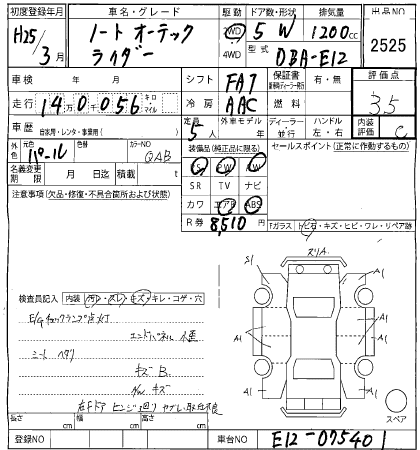 初度登録年月 車名・グレード 駆動 ドア数・形状 排気量 出品NO
H25/3月 ノート オーテック ライダー 2WD 4WD 5 W 1200cc 2525
型式 DBA-E12
車検 年 月 シフト FAT 保証書 有・無 評価点
走行 14万0,056 キロ・マイル 冷房 AAC 燃料 3.5
車歴 自家用・レンタ・事業用( ) 定員 5人 外車モデル 年 ディーラー・並行 ハンドル 左・右 内装評価 C
外色 元色 パール 色替 カラーNO QAB
装備品(純正品に限る) セールスポイント(正常に作動するもの)
名義変更期限 月 日迄 積載 t
PW
SR TV ナビ
カワ エアB ABS
R券 8,510円
注意事項(欠品・修復・不具合箇所および状態)
Fガラス トビ石・キズ・ヒビ・ワレ・リペア跡
スリA
S1 A1
A1
A1 A1
A1
S1 A1
検査員記入 内装 汚レ・スレ・キズ・キレ・コゲ・穴
E/Gチェックランプ点灯
エンドパネル
シート
キズB
キズ
右Fドア ヒンジ
長さ cm 幅 cm 高さ cm
スペア
登録NO 車台NO E12-075401